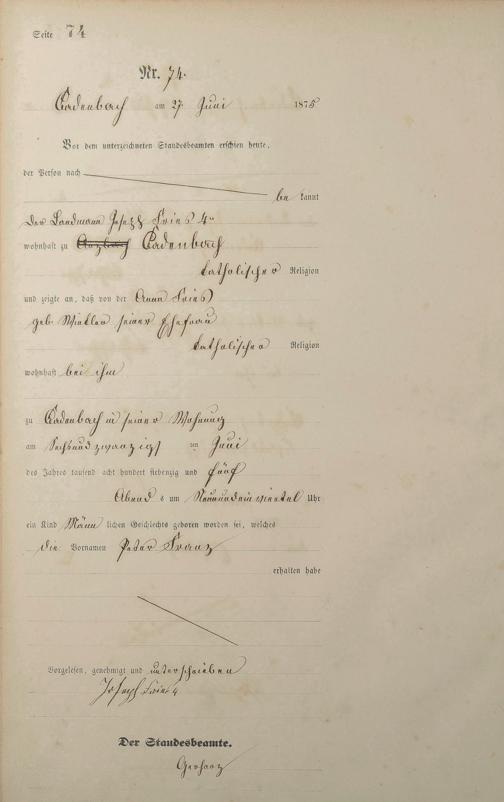 Seite 74
Nr. 74.
Cadenbach am 27 Juni 1875
Vor dem unterzeichneten Standesbeamten erschien heute,
der Person nach
be kannt
der Landmann Joseph Fries 4r
wohnhaft zu Cadenbach
katholischer Religion
und zeigte an, daß von der Anna Fries
geb. Winkler seiner Ehefrau
katholischer Religion
wohnhaft bei ihm
zu Cadenbach in seiner Wohnung
am Sechsundzwanzigst en Juni
des Jahres tausend acht hundert siebenzig und fünf
Abend s um Neunundeinviertel Uhr
ein Kind Männ lichen Geschlechts geboren worden sei, welches
die Vornamen Peter Franz
erhalten habe
Vorgelesen, genehmigt und unterschrieben
Joseph Fries 4
Der Standesbeamte.
Gerharz